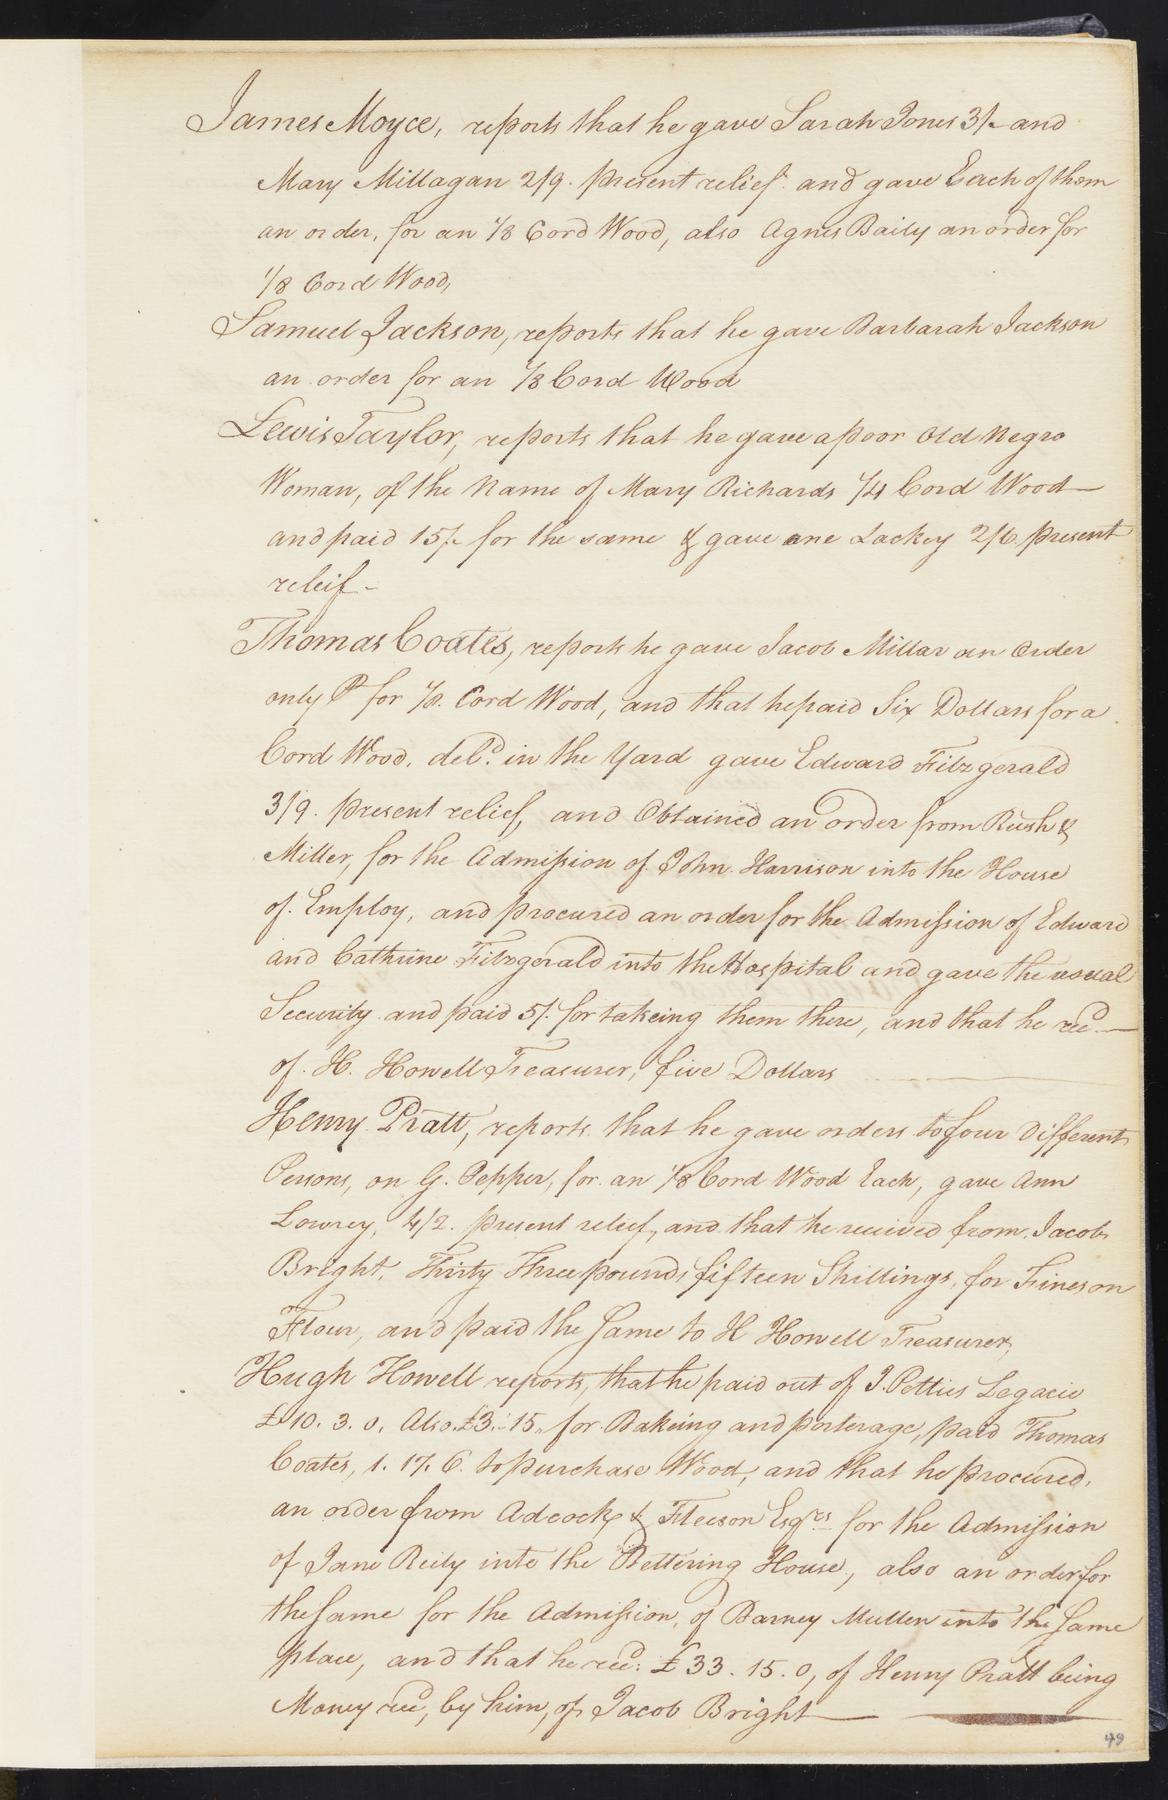 James Moyce, reports that he gave Sarah Jones 3/- and
Mary Millagan 2/9. present relief and gave Each of them
an order, for an 1/8 Cord Wood, also Agnes Baily an order for
1/8 Cord Wood,
Samuel Jackson, reports that he gave Barbarah Jackson
an order for an 1/8 Cord Wood
Lewis Taylor, reports that he gave a poor Old Negro
Woman, of the Name of Mary Richards 1/4 Cord Wood
and paid 15/- for the same & gave one Lackey 2/6 present
releif-
Thomas Coates, reports he gave Jacob Millar an Order
only for 1/8. Cord Wood, and that he paid Six Dollars for a
Cord Wood. deld. in the Yard gave Edward Fitzgerald
3/9. present relief, and Obtained an order from Rush &
Miller, for the Admission of John Harrison into the House
of Employ, and procured an order for the Admission of Edward
and Cathrine Fitzgerald into the Hospital and gave the usual
Security and paid 5/. for takeing them there, and that he recd.
of H. Howell Treasurer, five Dollars
Henry Pratt, reports that he gave orders to four Different
Persons, on G. Pepper, for an 1/8 Cord Wood Each, gave Ann
Lowrey, 4/2. present releif, and that he received from Jacob
Bright, Thirty Three pounds, fifteen Shillings, for Fines on
Flour, and paid the Same to H Howell Treasurer,
Hugh Howell reports, that he paid out of J. Petties Legacie
£10. 3. 0, Also. £3.-15,, for Bakeing and porterage, paid Thomas
Coates, 1. 17. 6. to purchase Wood, and that he procured,
an order from Adcock & Fleeson Esqrs. for the Admission
of Jane Reily into the Bettering House, also an order for
the Same for the Admission, of Barney Mullen into the Same
place, and that he recd: £33. 15. 0, of Henry Pratt being
Money recd, by him, of Jacob Bright
49